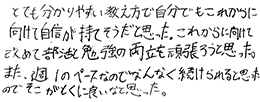 とても分かりやすい教え方で自分でもこれからに
向けて自信が持てそうだと思った。これからに向けて
改めて部活と勉強の両立を頑張ろうと思った。
また、週1のペースなのでなんなく続けられると思った
のでそこがとくに良いなと思った。